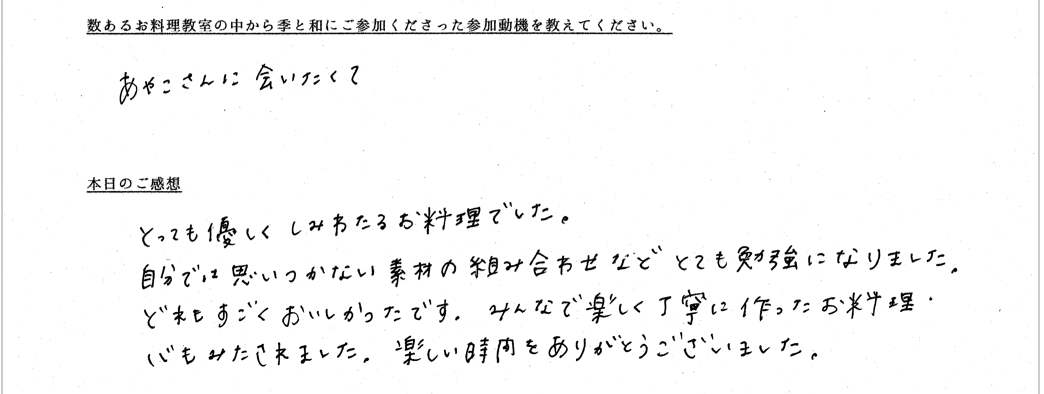 数あるお料理教室の中から季と和にご参加くださった参加動機を教えてください。
あやこさんに会いたくて
本日のご感想
とっても優しくしみわたるお料理でした。
自分では思いつかない素材の組み合わせなどとても勉強になりました。
どれもすごくおいしかったです。みんなで楽しく丁寧に作ったお料理・
心もみたされました。楽しい時間をありがとうございました。